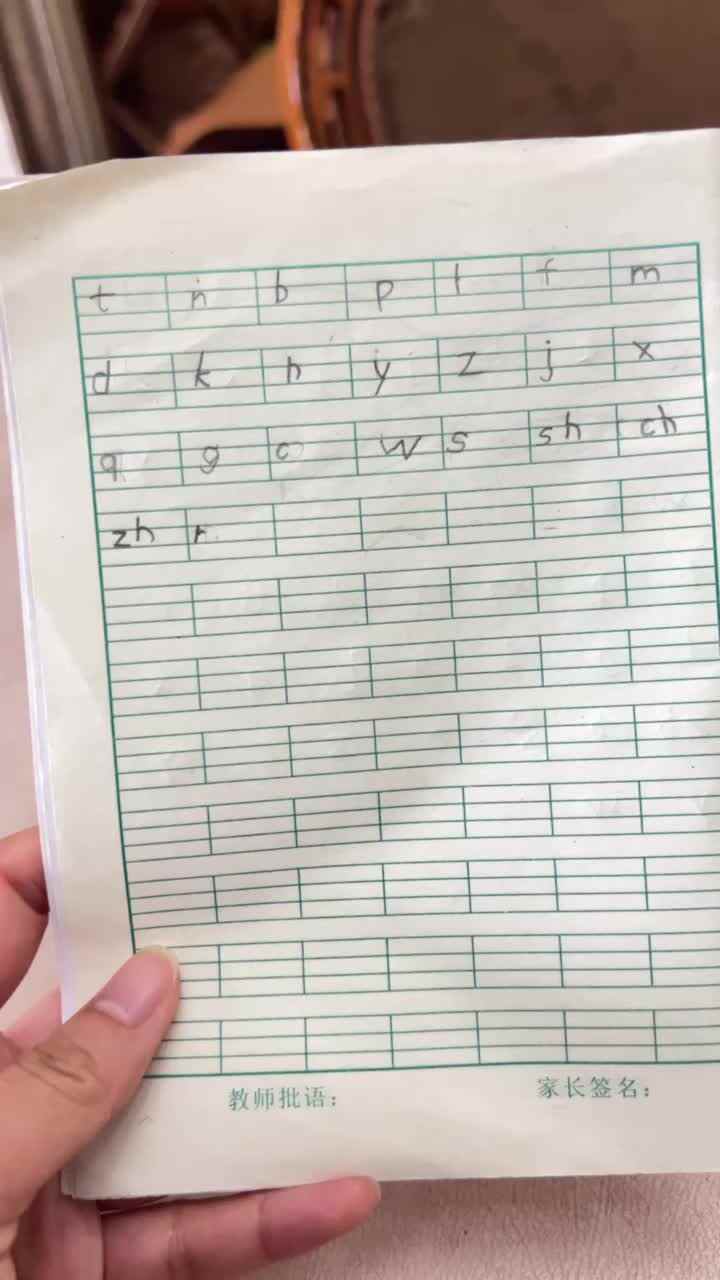 t n b p l f m
d k h y z j x
q g c w s sh ch
zh r
教师批语： 家长签名：